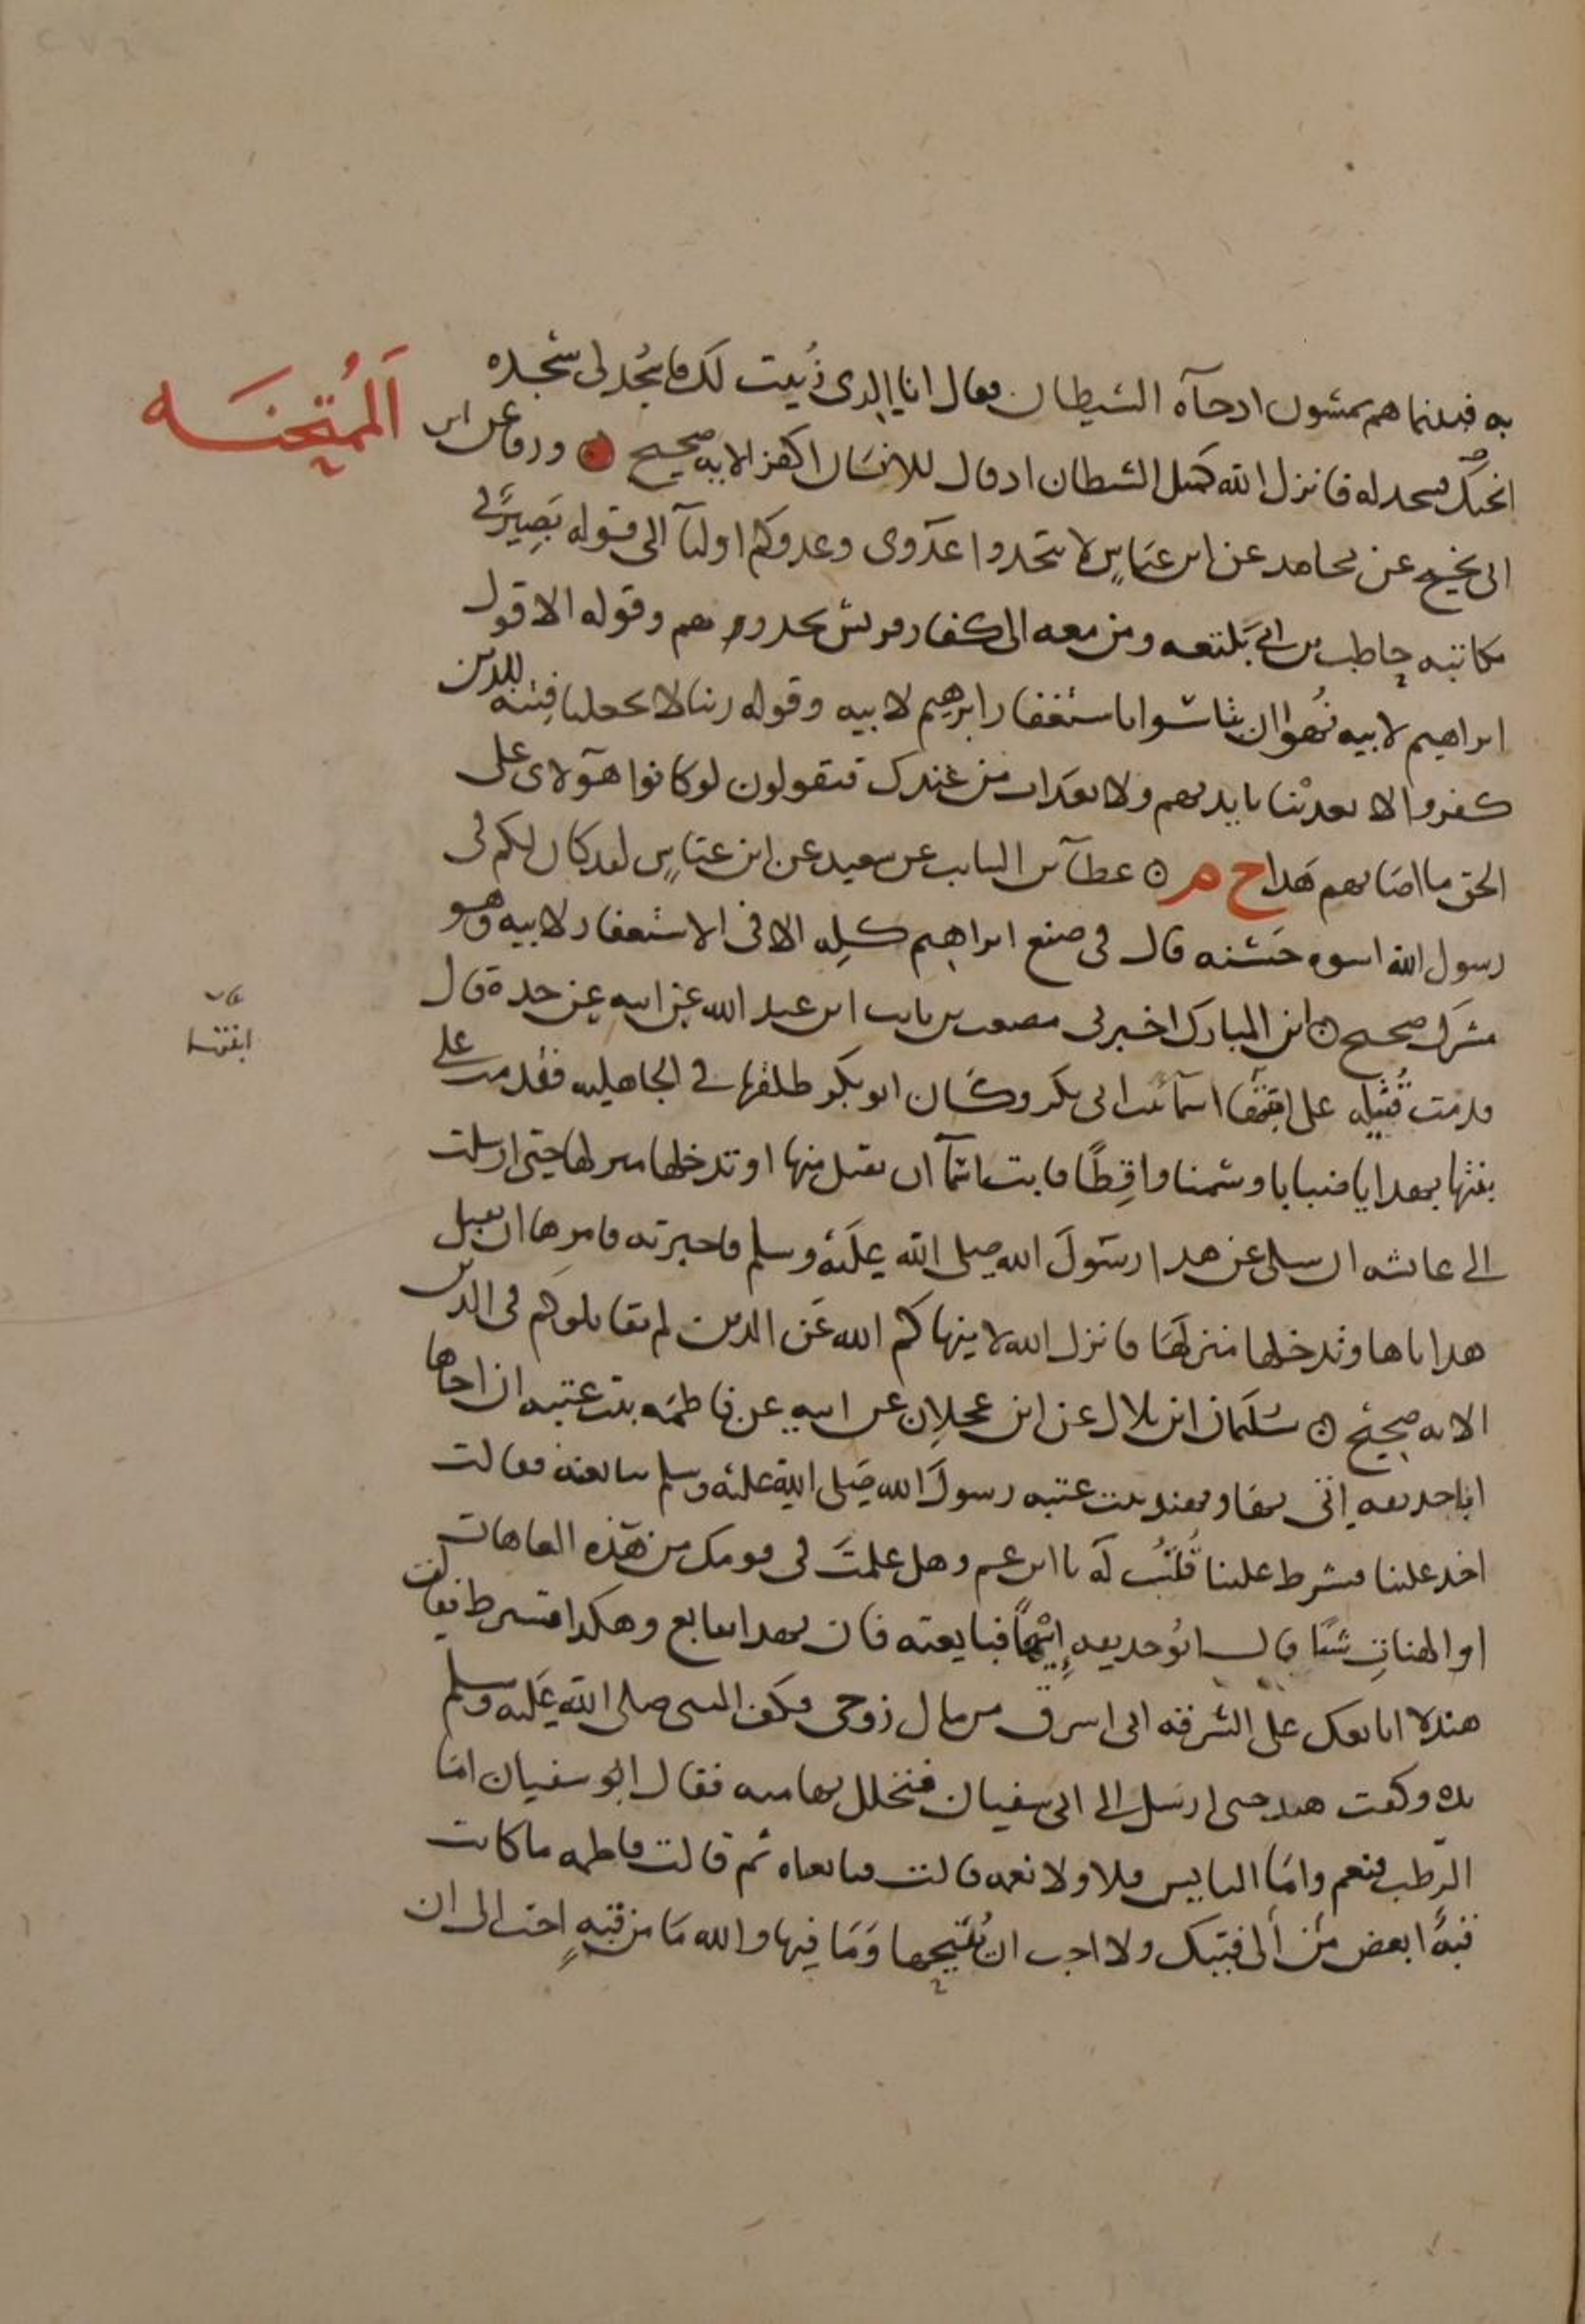 الممتحنه
به فبينما هم يمشون اذ جآه الشيطان فقال اني انا الذي زينت لك فاسجد لي سجده
انجيك فسجد له فانزل الله كمثل الشيطان اذ قال للانسان اكفر الايه صحيح ورقا عن ابن
ابي نجيح عن مجاهد عن ابن عباس لا تتخذوا عدوى وعدوكم اوليآ الى قوله بصير في
مكاتبه حاطب بن ابي بلتعه ومن معه الى كفار قريش يحذرونهم وقوله الا قول
ابراهيم لابيه نهوا ان يتاسوا باستغفار ابرهيم لابيه وقوله ربنا لا تجعلنا فتنه للذين
كفروا لا تعذبنا بايديهم ولا بعذاب من عندك فيقولون لو كانوا هولاى على
الحق ما اصابهم هذا خ م عطآ بن السايب عن سعيد عن ابن عباس لقد كان لكم في
رسول الله اسوه حسنه قال في صنع ابراهيم كله الا في الاستغفار لابيه وهو
مشرك صحيح ابن المبارك اخبرني مصعب بن ثابت ابن عبد الله عن ابيه عن جده قال
ابنتها
قدمت قتيله على ابنتها اسمآ بنت ابي بكر وكان ابو بكر طلقها في الجاهليه فقدمت على
بنتها بهدايا ضبابا وسمنا واقطا فابت اسمآ ان تقبل منها او تدخلها منزلها حتى ارسلت
الى عايشه ان سلي عن هذا رسول الله صلى الله عليه وسلم فاخبرته فامرها ان تقبل
هداياها وتدخلها منزلها فانزل الله لا ينهاكم الله عن الذين لم يقاتلوكم في الدين
الايه صحيح سليمان ابن بلال عن ابن عجلان عن ابيه عن فاطمه بنت عتبه ان اخاها
ابا حذيفه اتى بها وبهند بنت عتبه رسول الله صلى الله عليه وسلم تبايعنه فقالت
اخذ علينا فشرط علينا قلت له يا ابن عم وهل علمت في قومك من هذه العاهات
او الهنات شيا قال ابو حذيفه ايها فبايعته فان بهذا يبايع وهكذا يشترط فقالت
هند لا ابايعك على السرقه اني اسرق من مال زوجي فكف النبي صلى الله عليه وسلم
يده وكفت هند حتى ارسل الى ابي سفيان فتحلل لها منه فقال ابو سفيان اما
الرطب فنعم واما اليابس فلا ولا نعمه قالت فبايعناه ثم قالت فاطمه ما كانت
قبه ابغض من الي قبتك ولا احب ان يبيحها وما فيها والله ما من قبه احب الي ان